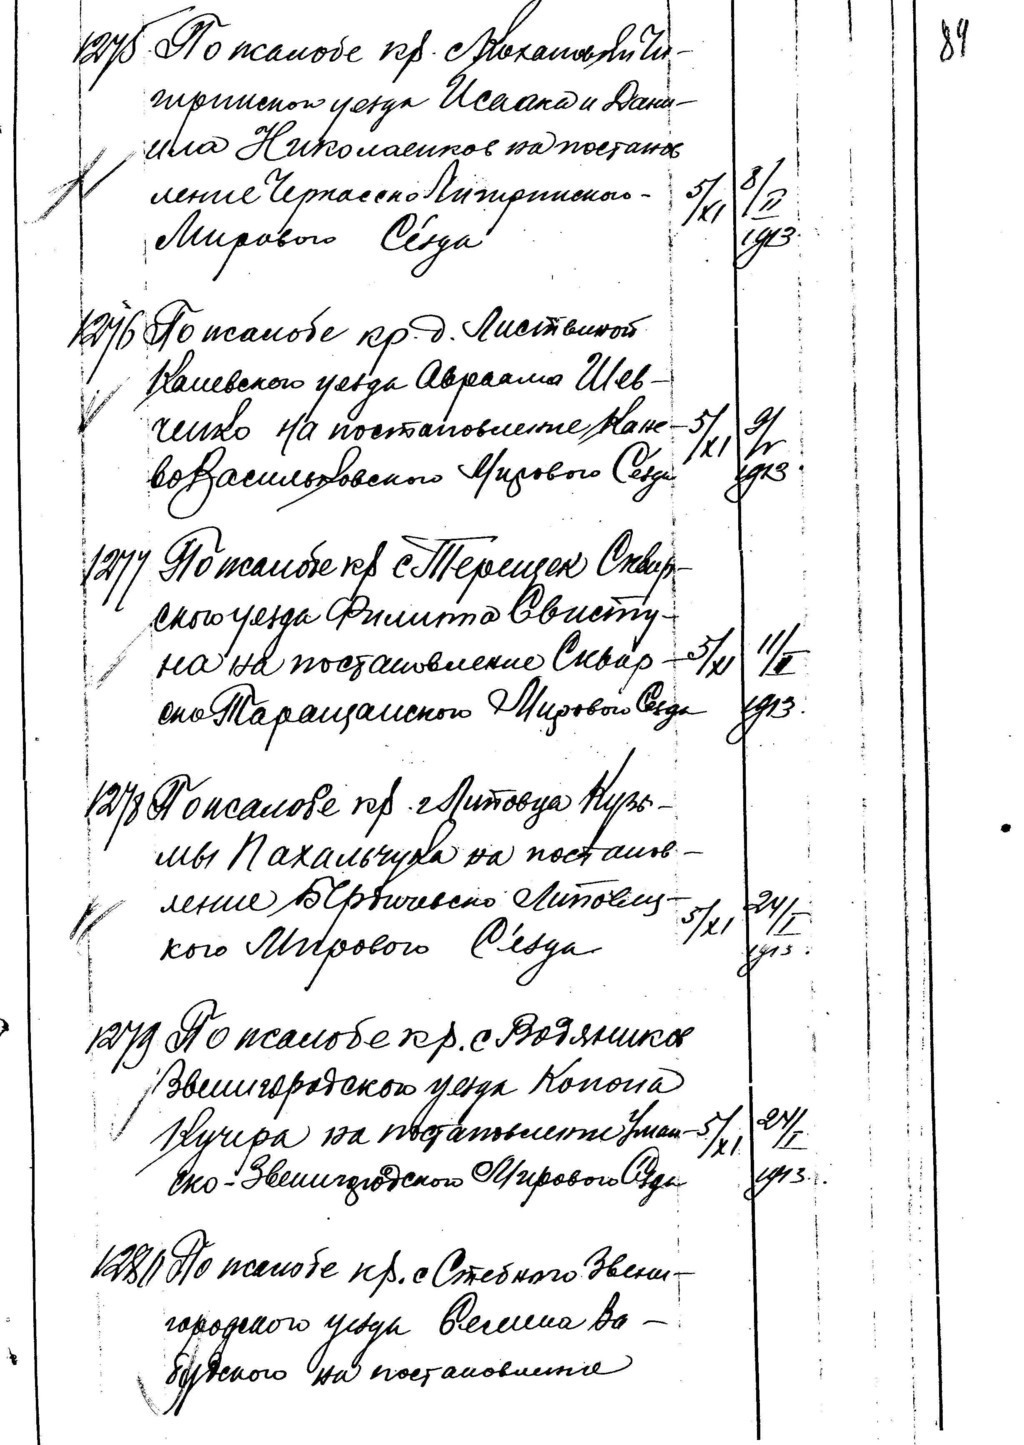 84
1275 По жалобе кр. с. Чи-
гиринскою уезда Исаака и Дани-
ила Николаенков на постанов
ление Черкасско Чигиринского
Мирового Сезда 5/XI 8/II 1913.
1276 По жалобе кр. д. Листвиной
Каневского уезда Авраама Шев-
ченко на постановление Кане-
во Васильковского Мирового Сезда 5/XI 9/V 1913.
1277 По жалобе кр с Терещек Сквир-
ского уезда Филиппа Свисту-
на на постановление Сквир-
ско Таращанского Мирового Сезда 5/XI 11/II 1913.
1278 По жалобе кр. г Липовца Кузь-
мы Пахальчука на постанов-
ление Бердичевско Липовец-
кого Мирового Сезда 5/XI 24/I 1913.
1279 По жалобе кр. с Водяников
Звенигородского уезда Конона
Кучера на постановление Уман-
ско-Звенигородского Мирового Сезда 5/XI 24/I 1913.
1280 По жалобе кр. с Стебного Звени-
городского уезда Семена Ва-
будского на постановление